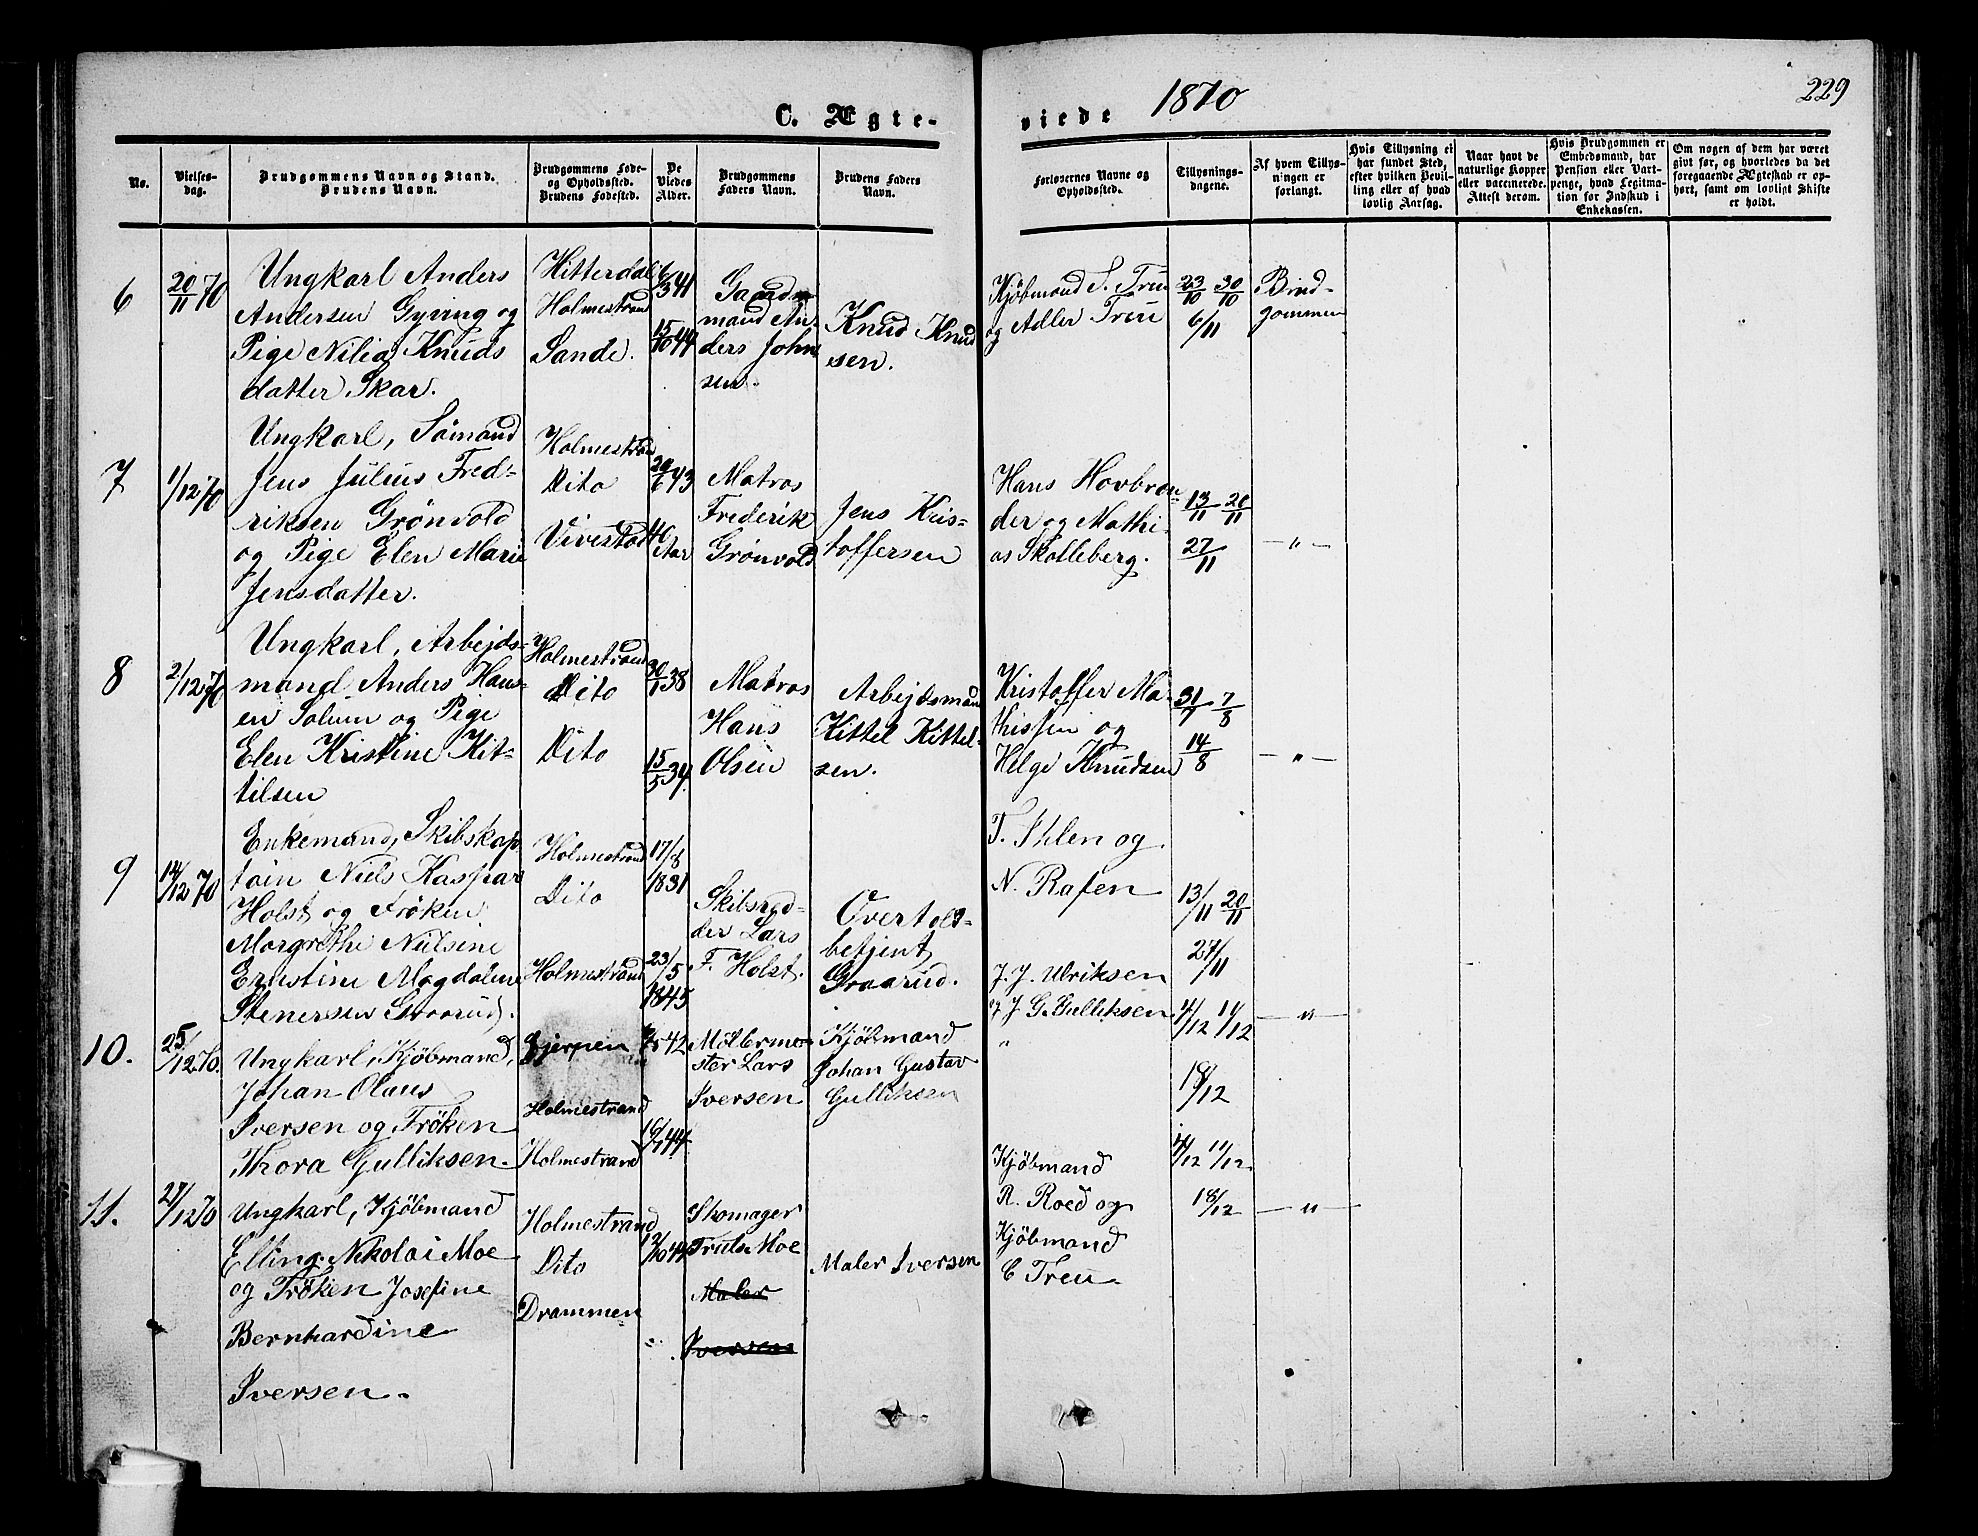 1870
229
C. Ægte-
viede
No.
Vielses-
dag.
Brudgommens Navn og Stand.
Brudens Navn.
Brudgommens Føde-
og Opholdssted.
Brudens Fødested.
De
Viedes
Alder.
Brudgommens
Faders Navn.
Brudens Faders
Navn.
Forlovernes Navne og
Opholdssted.
Tillysnings-
dagene.
Af hvem Tillys-
ningen er
forlangt.
Hvis Tillysning ei
har fundet Sted,
efter hvilken Bevil-
ling eller af hvad
lovlig Aarsag.
Naar havt de
naturlige Kopper
eller vaccinerede.
Attest derom.
Hvis Brudgommen er
Embedsmand, har
Pension eller Vart-
penge, hvad Legitima-
tion for Indskud i
Enkekassen.
Om nogen af dem har været
givt før, og hvorledes da det
foregaaende Ægteskab er op-
hørt, samt om lovligt Skifte
er holdt.
6
20/11 70
Ungkarl Anders
Andersen Gyving og
Pige Nilia Knuds
datter Skar.
Hitterdal
Holmestrand
Sande.
6/3 41
15/10 44
Gaard-
mand An-
ders John
sen.
Knud Knud
sen.
Kjöbmand S. Treu
og Adler Treu
23/10 30/10
6/11
Brud-
gommen
7
1/12 70
Ungkarl, Sömand
Jens Julius Fred-
riksen Grönvold
og Pige Elen Marie
Jensdatter.
Holmestrand
Dito
Vivestad
20/6 43
40
Aar
Matros
Frederik
Grönvold
Jens Kris-
toffersen
Hans Hovbran-
der og Mathi-
as Skolleberg.
13/11 20/11
27/11
— " —
8
2/12 70
Ungkarl, Arbejds-
mand Anders Hans-
en Solum og Pige
Elen Kristine Kit-
tilsen
Holmestrand
Dito
Dito
30/1 38
15/5 34
Matros
Hans
Olsen
Arbejdsmand
Kittel Kittel-
sen.
Kristoffer Ma-
thisen og
Helge Knudsen
31/7 7/8
14/8
— " —
9
14/12 70
Enkemand, Skibskap
tain Niels Kaspar
Holst og Fröken
Margrethe Nielsine
Ernestine Magdalene
Stenersen Graarud.
Holmestrand
Dito
Holmestrand
17/8
1831
23/5
1845
Skibsred-
der Lars
F. Holst.
Overtold-
betjent
Graarud.
T. Ihlen og
N. Rafen
13/11 20/11
27/11
— " —
10.
25/12 70.
Ungkarl, Kjöbmand,
Johan Olaus
Iversen og Fröken
Thora Gulliksen.
Gjerpen
Holmestrand
Holmestrand
42
44
Mölberme-
ster Lars
Iversen
Kjöbmand
Johan Gustav
Gulliksen
J. J. Ulriksen
og J. G. Gulliksen
"
4/12 11/12
18/12
11.
27/12 70
Ungkarl, Kjöbmand
Elling Nikolai Moe
og Fröken Josefine
Bernhardine
Iversen.
Holmestrand
Dito
Drammen
12/10 44
"
Skomager
Truls Moe
Maler
Iversen
Maler Iversen
Kjöbmand
R. Roed og
Kjöbmand
C Treu.
4/12 11/12
18/12
— " —